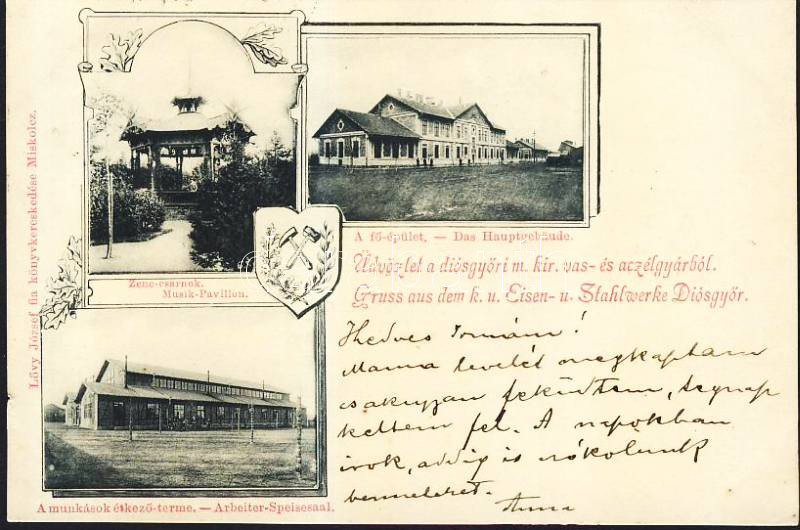 Lővy József fia könyvkereskedése Miskolcz.
Zene-csarnok.
Musik-Pavillon.
A fő-épület. — Das Hauptgebäude.
Üdvözlet a diósgyőri m. kir. vas- és aczélgyárból.
Gruss aus dem k. u. Eisen- u. Stahlwerke Diósgyőr.
A munkások étkező-terme. — Arbeiter-Speisesaal.
Kedves
Mama levelét megkaptam
feküdtem, tegnap
keltem fel. A napokban
irok, addig is csókolunk
benneteket.
Anna